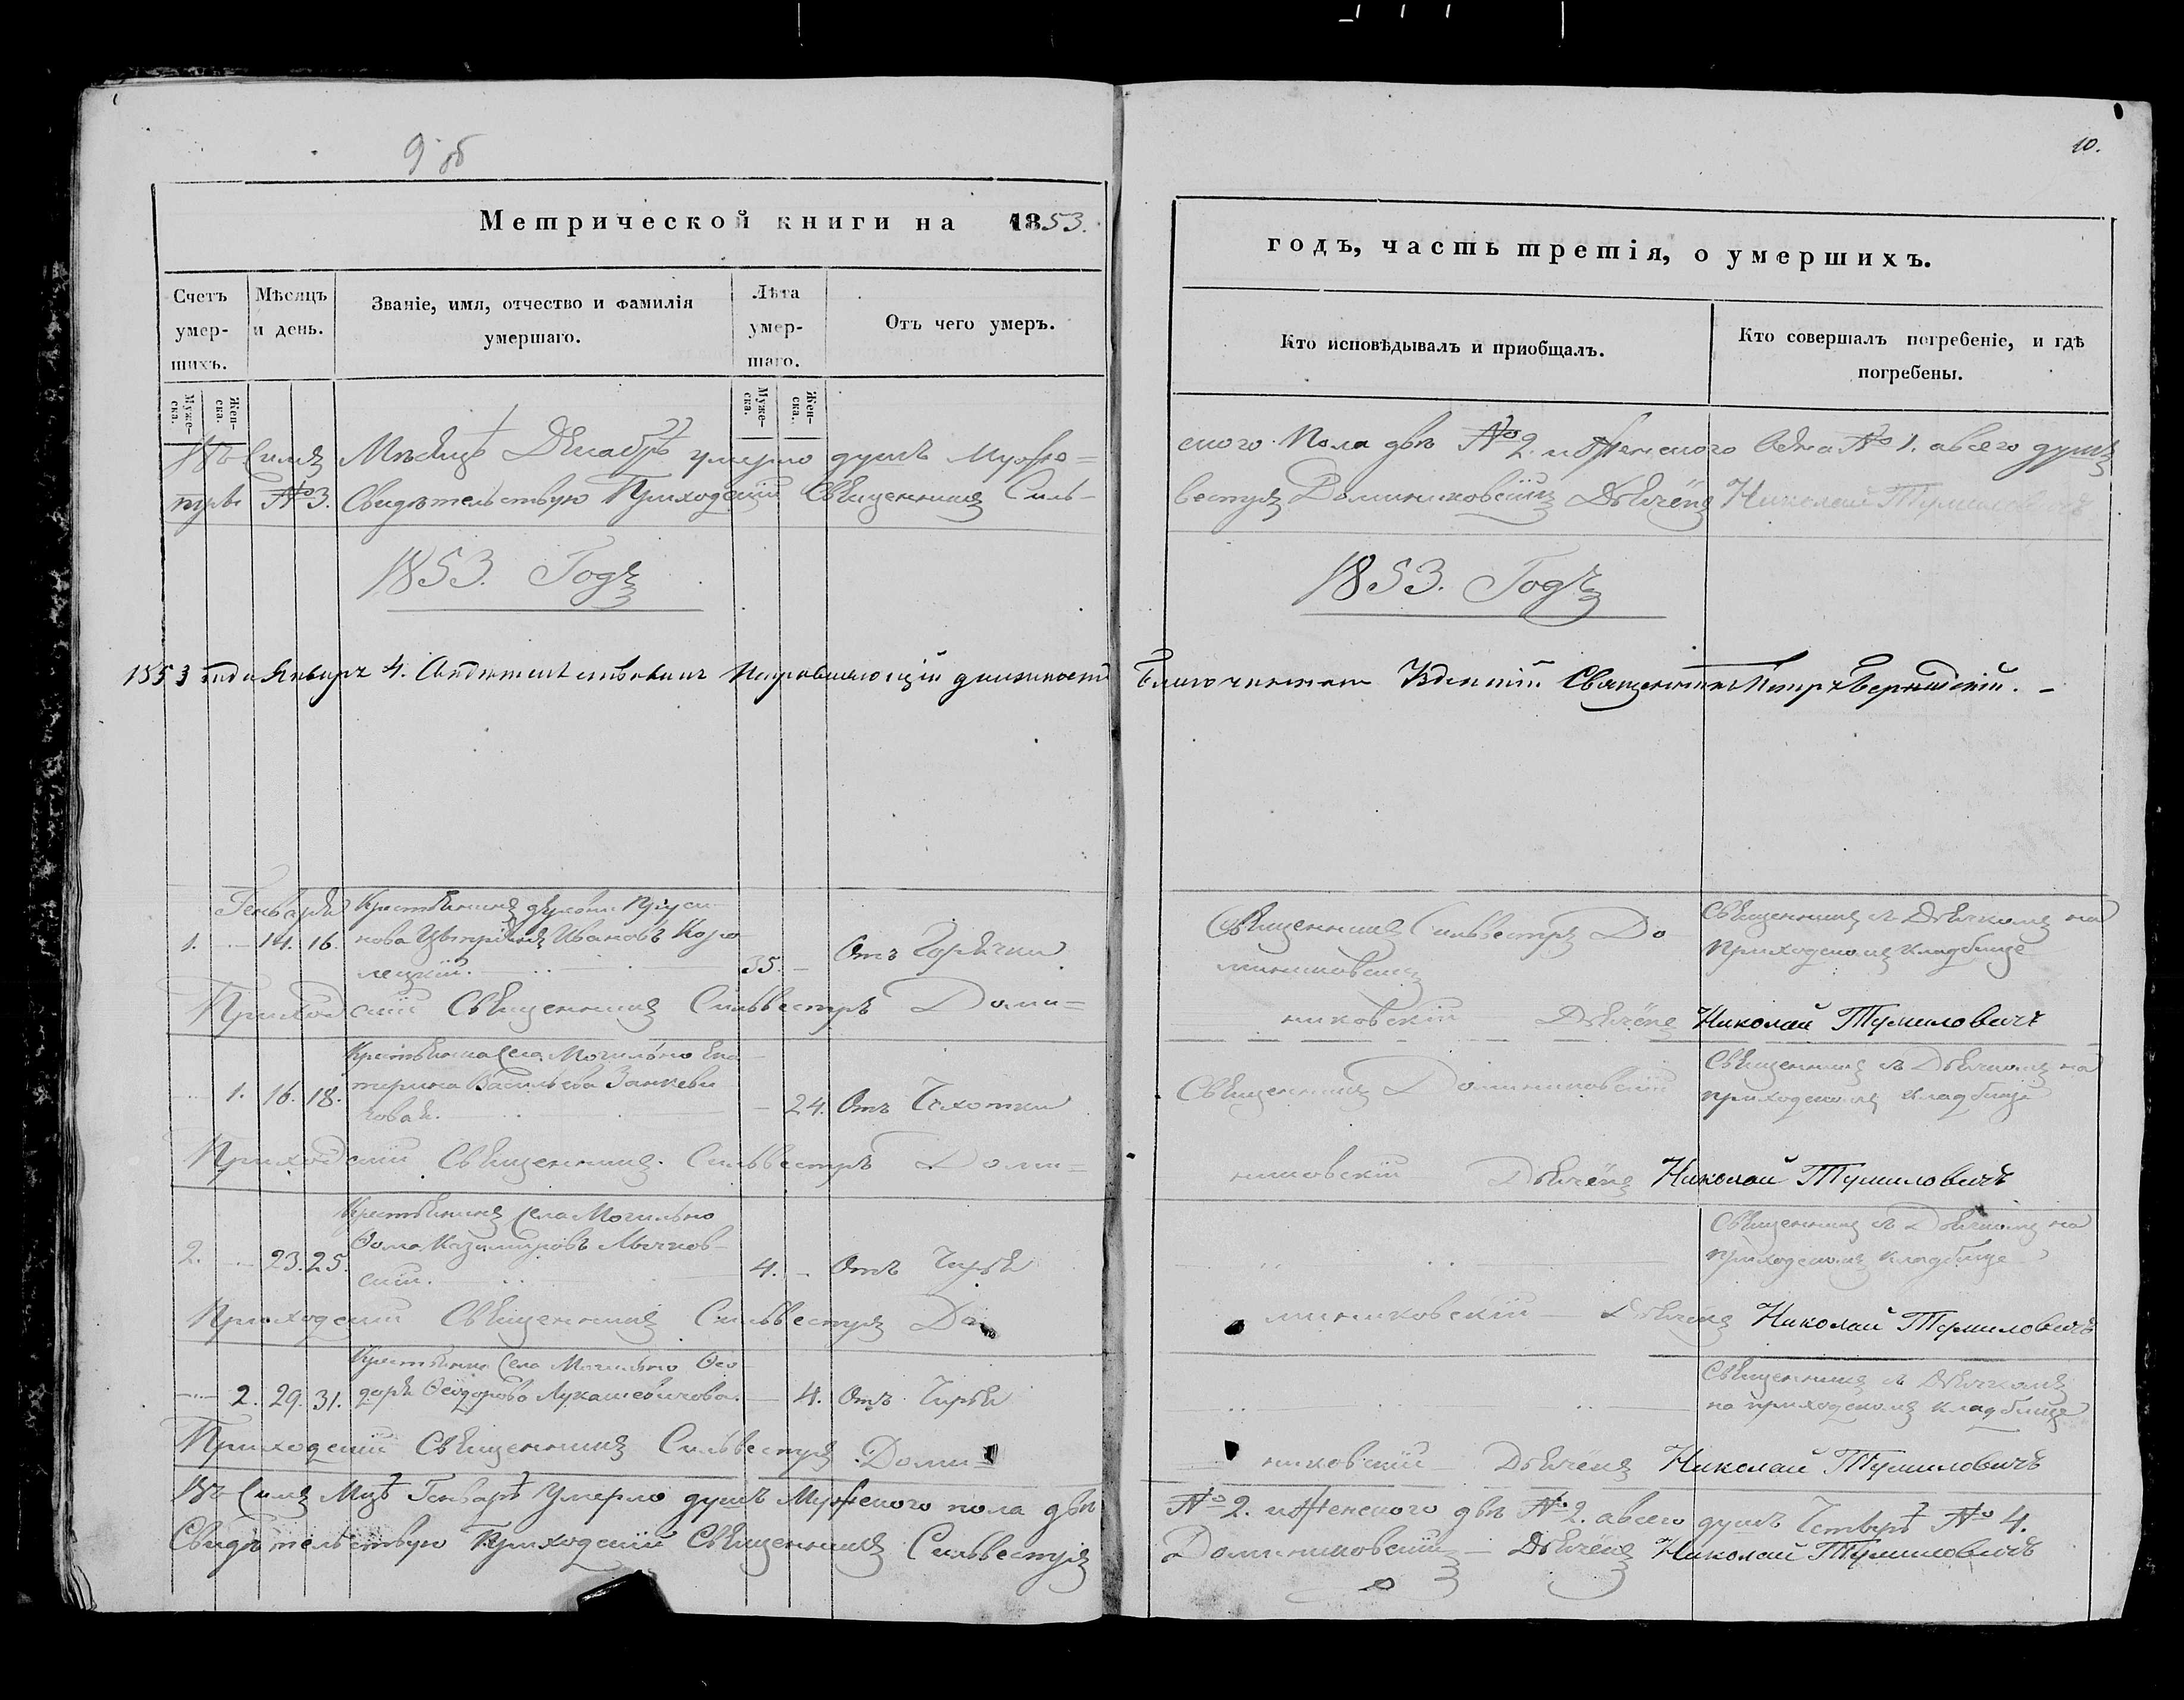 9 об
10.
Метрической книги на 1853.
годъ, часть третія, о умершихъ.
Счетъ умер-шихъ.
Мѣсяцъ и день.
Званіе, имя, отчество и фамилія умершаго.
Лѣта умер-шаго.
Отъ чего умеръ.
Кто исповѣдывалъ и пріобщалъ.
Кто совершалъ погребеніе, и гдѣ погребены.
Муже-ска.
Жен-ска.
Муже-ска.
Жен-ска.
Въ Семъ Мѣсяцѣ Декабрѣ умерло душъ Муже=
ского Пола двѣ № 2. и Женского одна № 1. а всего душъ
три № 3. Свидѣтельствую Приходскій Священникъ Силь-
вестръ Доминиковскій Дьячекъ Николай Тумиловичъ
1853. Годъ
1853. Годъ
1853 года Января 4. Исправляющій должность
Благочиннаго Священникъ Петръ
Генваря
1. 14. 16.
Крестьянинъ деревни
Ивановъ
лецкій.
35.
Отъ Горячки
Священникъ Сильвестръ До
миниковскій
Священникъ съ Дьячкомъ на
приходскомъ кладбище
Приходскій Священникъ Сильвестръ Доми=
никовскій Дьячекъ Николай Тумиловичъ
1. 16. 18.
Крестьянка Села Могильно Ека
терина Васильева Занкеви
чова.
24. Отъ Чахотки
Священникъ Доминиковскій
Священникъ съ Дьячкомъ на
приходскомъ кладбище
Приходскій Священникъ Сильвестръ Доми=
никовскій Дьячекъ Николай Тумиловичъ
2. 23. 25.
Крестьянинъ Села Могильно
Ѳома Казимировъ
скій.
4. Отъ
Священникъ съ Дьячкомъ на
приходскомъ кладбище
Приходскій Священникъ Сильвестръ До
миниковскій Дьячекъ Николай Тумиловичъ
2. 29. 31.
Крестьянка Села Могильно Ѳео
дора Ѳеодорова Лукашевичова.
4. Отъ
Священникъ съ Дьячкомъ
на приходскомъ кладбище
Приходскій Священникъ Сильвестръ Доми=
никовскій Дьячекъ Николай Тумиловичъ
Въ Семъ Мцѣ Генварѣ Умерло душъ Мужеского пола двѣ
№ 2. и Женского двѣ № 2. а всего душъ Четырѣ № 4.
Свидѣтельствую Приходскій Священникъ Сильвестръ
Доминиковскій Дьячекъ Николай Тумиловичъ